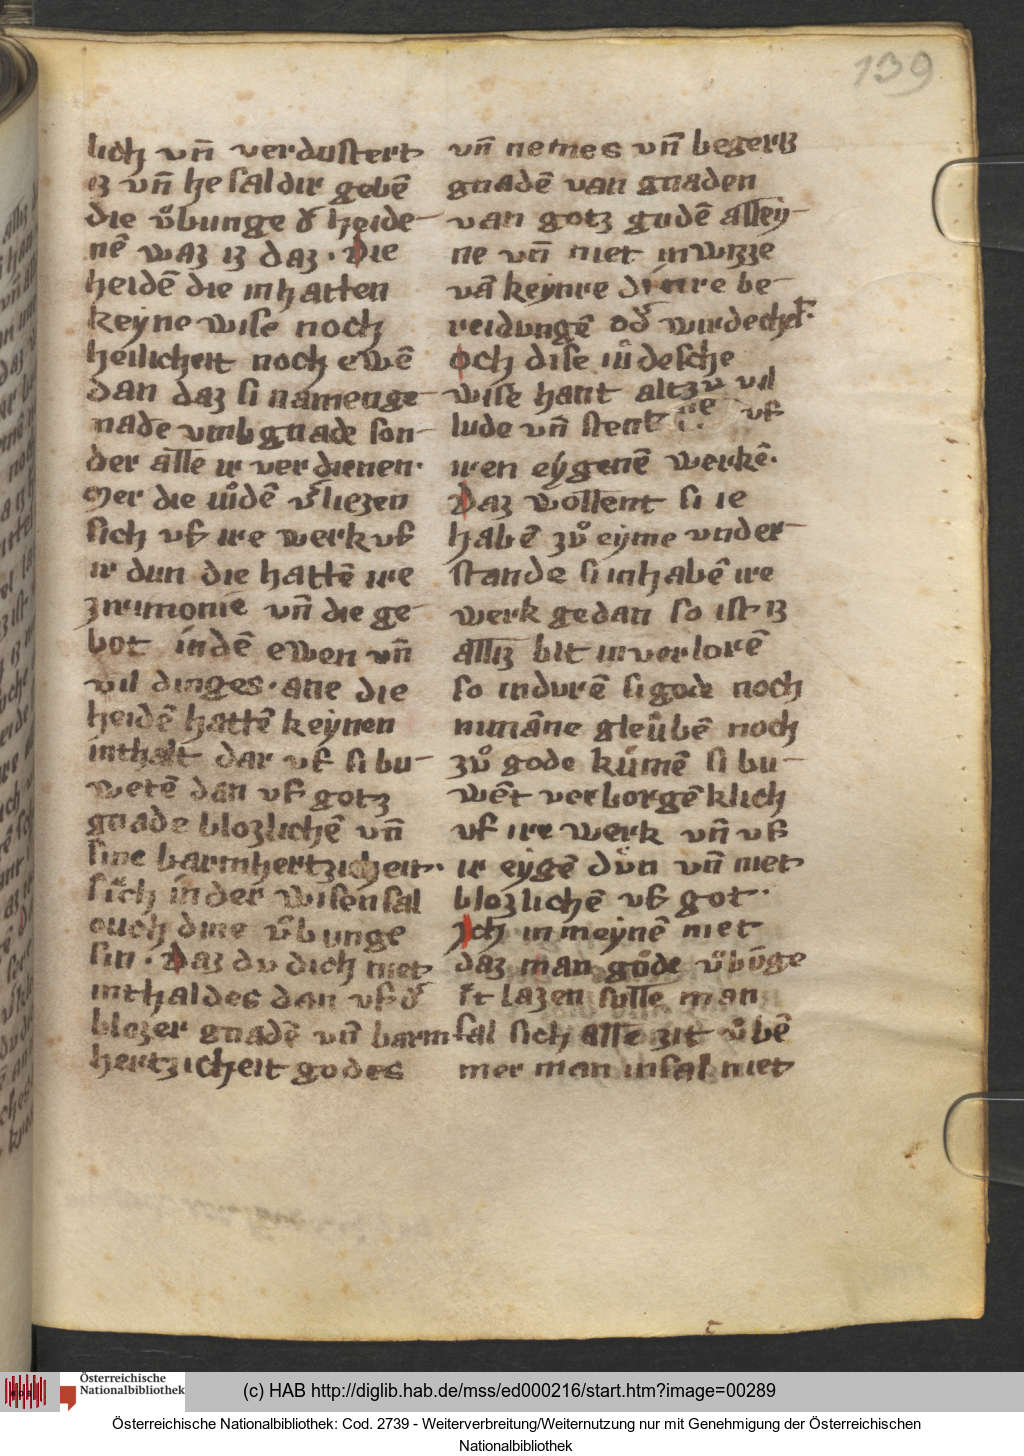 139
lich vn̄ verdustert
iz vn̄ he sal dir gebē
die v̊bunge d᷑ heide-
nē waz iz daz. Die
heidē die inhatten
keyne wise noch
heilicheit noch ewē
dan daz si namen ge-
nade vmb gnade son-
der alle ir verdienen.
Mer die iůdē v᷑liezen
sich vf ire werk vf
ir dun die hattē ire
zirimonie vn̄ die ge-
bot in dē ewen vn̄
vil dinges. ane die
heidē hattē keynen
inthalt dar vf si bu-
wetē dan vf gotz
gnade blozlichē vn̄
sine barmhertzicheit.
sich in der wisen sal
ouch dine v̊bunge
sin. Daz du dich niet
inthaldes dan vf d᷑
blozer gnadē vn̄ barm
hertzicheit godes
vn̄ nemes vn̄ begeriz
gnadē van gnaden
van gotz gudē alley-
ne vn̄ niet inwizze
vā keynre dinre be-
reidungē od᷑ wirdechet.
Och dise iůdesche
wise hant altzu vil
lude vn̄ stent vf
iren eygenē werkē.
Daz wollent si ie
habē zů eyme vnder-
stande si inhabē ire
werk gedan so ist iz
alliz bit in verlorē
so indurē si gode noch
nimāne gleůbē noch
zů gode kůmē si bu-
wēt verborgēklich
vf ire werk vn̄ vf
ir eygē dům vn̄ niet
blozlichē vf got.
Ich inmeynē niet
daz man gůde v̊būge
it lazen sulle man
sal sich alle zit v̊bē
mer man insal niet
Österreichische
Nationalbibliothek
(c) HAB http://diglib.hab.de/mss/ed000216/start.htm?image=00289
Österreichische Nationalbibliothek: Cod. 2739 - Weiterverbreitung/Weiternutzung nur mit Genehmigung der Österreichischen
Nationalbibliothek